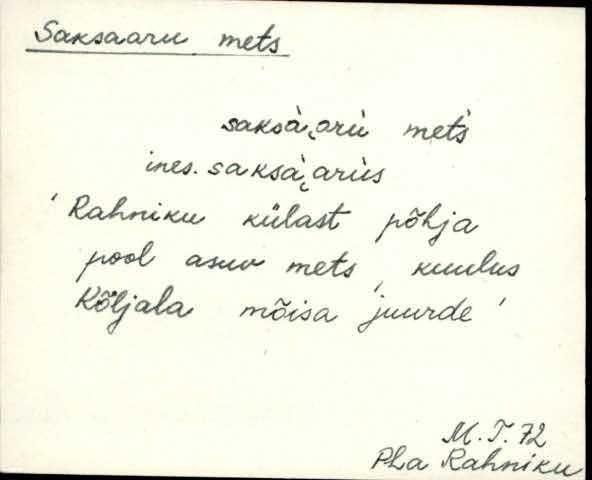 Saksaaru mets
saksà˛arù met́s
ines. saksà˛arùs
'Rahniku külast põhja
pool asuv mets, kuulus
Kõljala mõisa juurde'
M.T.72
Pha Rahniku